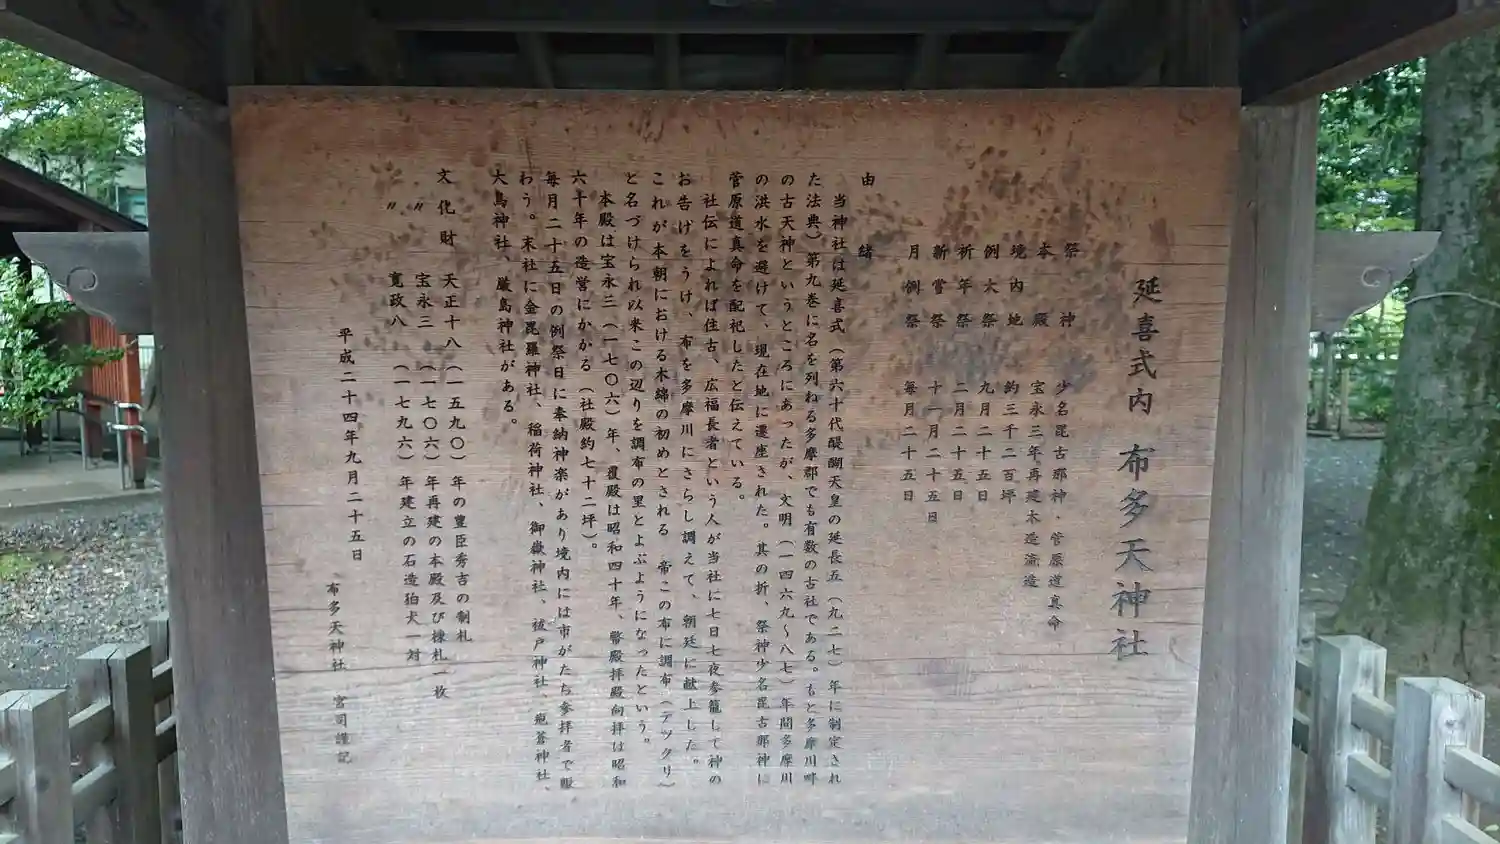 延喜式内　布多天神社
祭神　少名毘古那神・菅原道真命
本殿　宝永三年再建木造流造
境内地　約三千二百坪
例大祭　九月二十五日
祈年祭　二月二十五日
新嘗祭　十一月二十五日
月例祭　毎月二十五日
由緒
当神社は延喜式（第六十代醍醐天皇の延長五（九二七）年に制定され
た法典）第九巻に名を列ねる多摩郡でも有数の古社である。もと多摩川畔
の古天神というところにあったが、文明（一四六九〜八七）年間多摩川
の洪水を避けて、現在地に遷座された。其の折、祭神少名毘古那神に
菅原道真命を配祀したと伝えている。
社伝によれば往古、広福長者という人が当社に七日七夜参籠して神の
お告げをうけ、布を多摩川にさらし調えて、朝廷に献上した。
これが本朝における木綿の初めとされる　帝この布に調布（テツクリ）
と名づけられ以来この辺りを調布の里とよぶようになったという。
本殿は宝永三（一七〇六）年、覆殿は昭和四十年、幣殿拝殿向拝は昭和
六十年の造営にかかる（社殿約七十二坪）。
毎月二十五日の例祭日に奉納神楽があり境内には市がたち参拝者で賑
わう。末社に金毘羅神社、稲荷神社、御嶽神社、祓戸神社、疱蒼神社、
大鳥神社、厳島神社がある。
文化財　天正十八（一五九〇）年の豊臣秀吉の制札
〃　宝永三（一七〇六）年再建の本殿及び棟札一枚
〃　寛政八（一七九六）年建立の石造狛犬一対
平成二十四年九月二十五日
布多天神社　宮司謹記